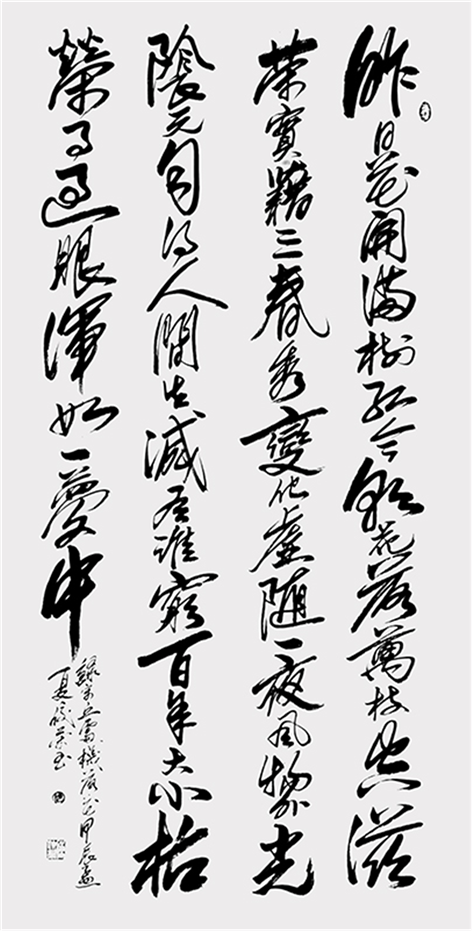 昨日花開滿樹紅今朝花落萬枝空滋
荣實藉三春秀變化虛随一夜風物外光
陰元自得人間生滅有誰窮百年大小枯
榮事過眼渾如一夢中
錄宋丘處機落花甲辰孟
夏書